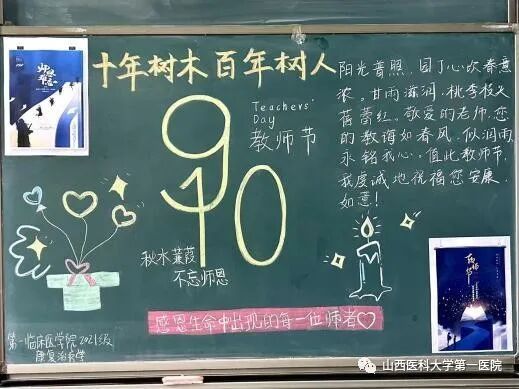 十年树木 百年树人
Teachers'
Day
教师节
9
10
阳光普照,园丁心吹春意
浓。甘雨滋润,桃李枝头
蓓蕾红。敬爱的老师,您
的教诲如春风,似润雨
永铭我心。值此教师节,
我虔诚地祝福您安康,
如意!
秋水蒹葭
不忘师恩
感恩生命中出现的每一位师者
第一临床医学院2021级
康复治疗学
山西医科大学第一医院